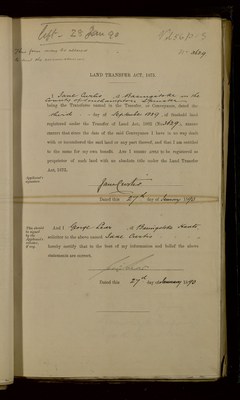 LAND TRANSFER ACT, 1875
I Jane Curtis of Basingstoke in the
County of Southampton Spinster
being the Transferee named in the Transfer, or Conveyance, dated the
third day of September 1889 of freehold land
registered under the Transfer of Land Act, 1862
ment that since the date of the said Conveyance I have in no way dealt
with or incumbered the said land or any part thereof, and that I am entitled
to the same for my own benefit. And I desire to be registered as
proprietor of such land with an absolute title under the Land Transfer
Act, 1875.
Applicant's
signature.
Jane Curtis
Dated this 27th day of January 1890
This should
be signed
by the
Applicant's
solicitor,
if any.
And I George of Basingstoke Hants
solicitor to the above named Jane Curtis
hereby certify that to the best of my information and belief the above
statements are correct.
Dated this 27th day of January 1890